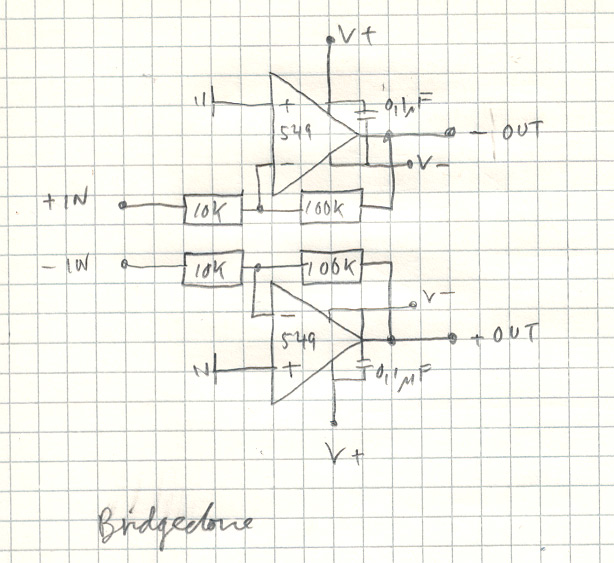 V+
0,1µF
+
549
- OUT
-
V-
+IN
10K
100K
-IN
10K
100K
V-
-
549
+ OUT
+
0,1µF
V+